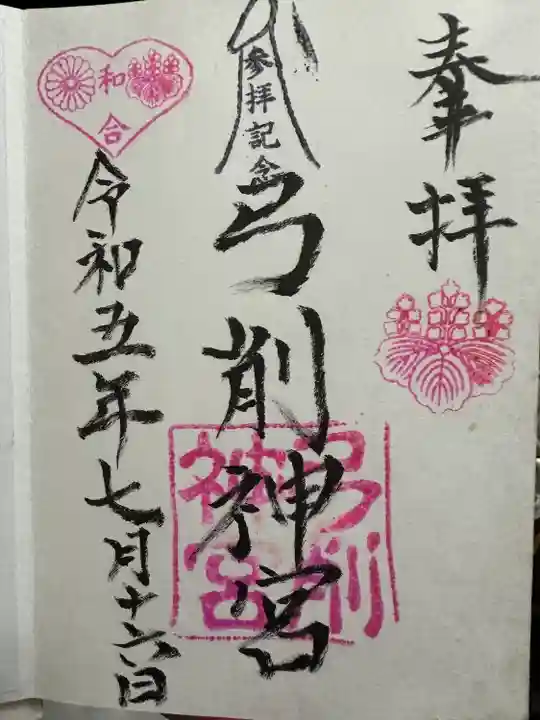 奉拝
参拝記念
弓削神宮
弓削
神宮
和合
令和五年七月十六日